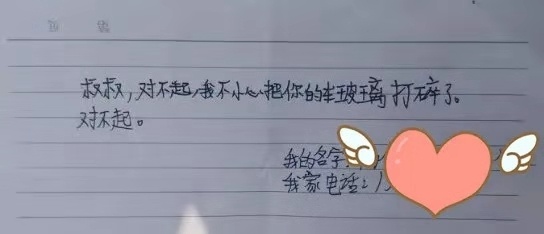 叔叔，对不起，我不小心把你的车玻璃打碎了。
对不起。
我的名字
我家电话：1